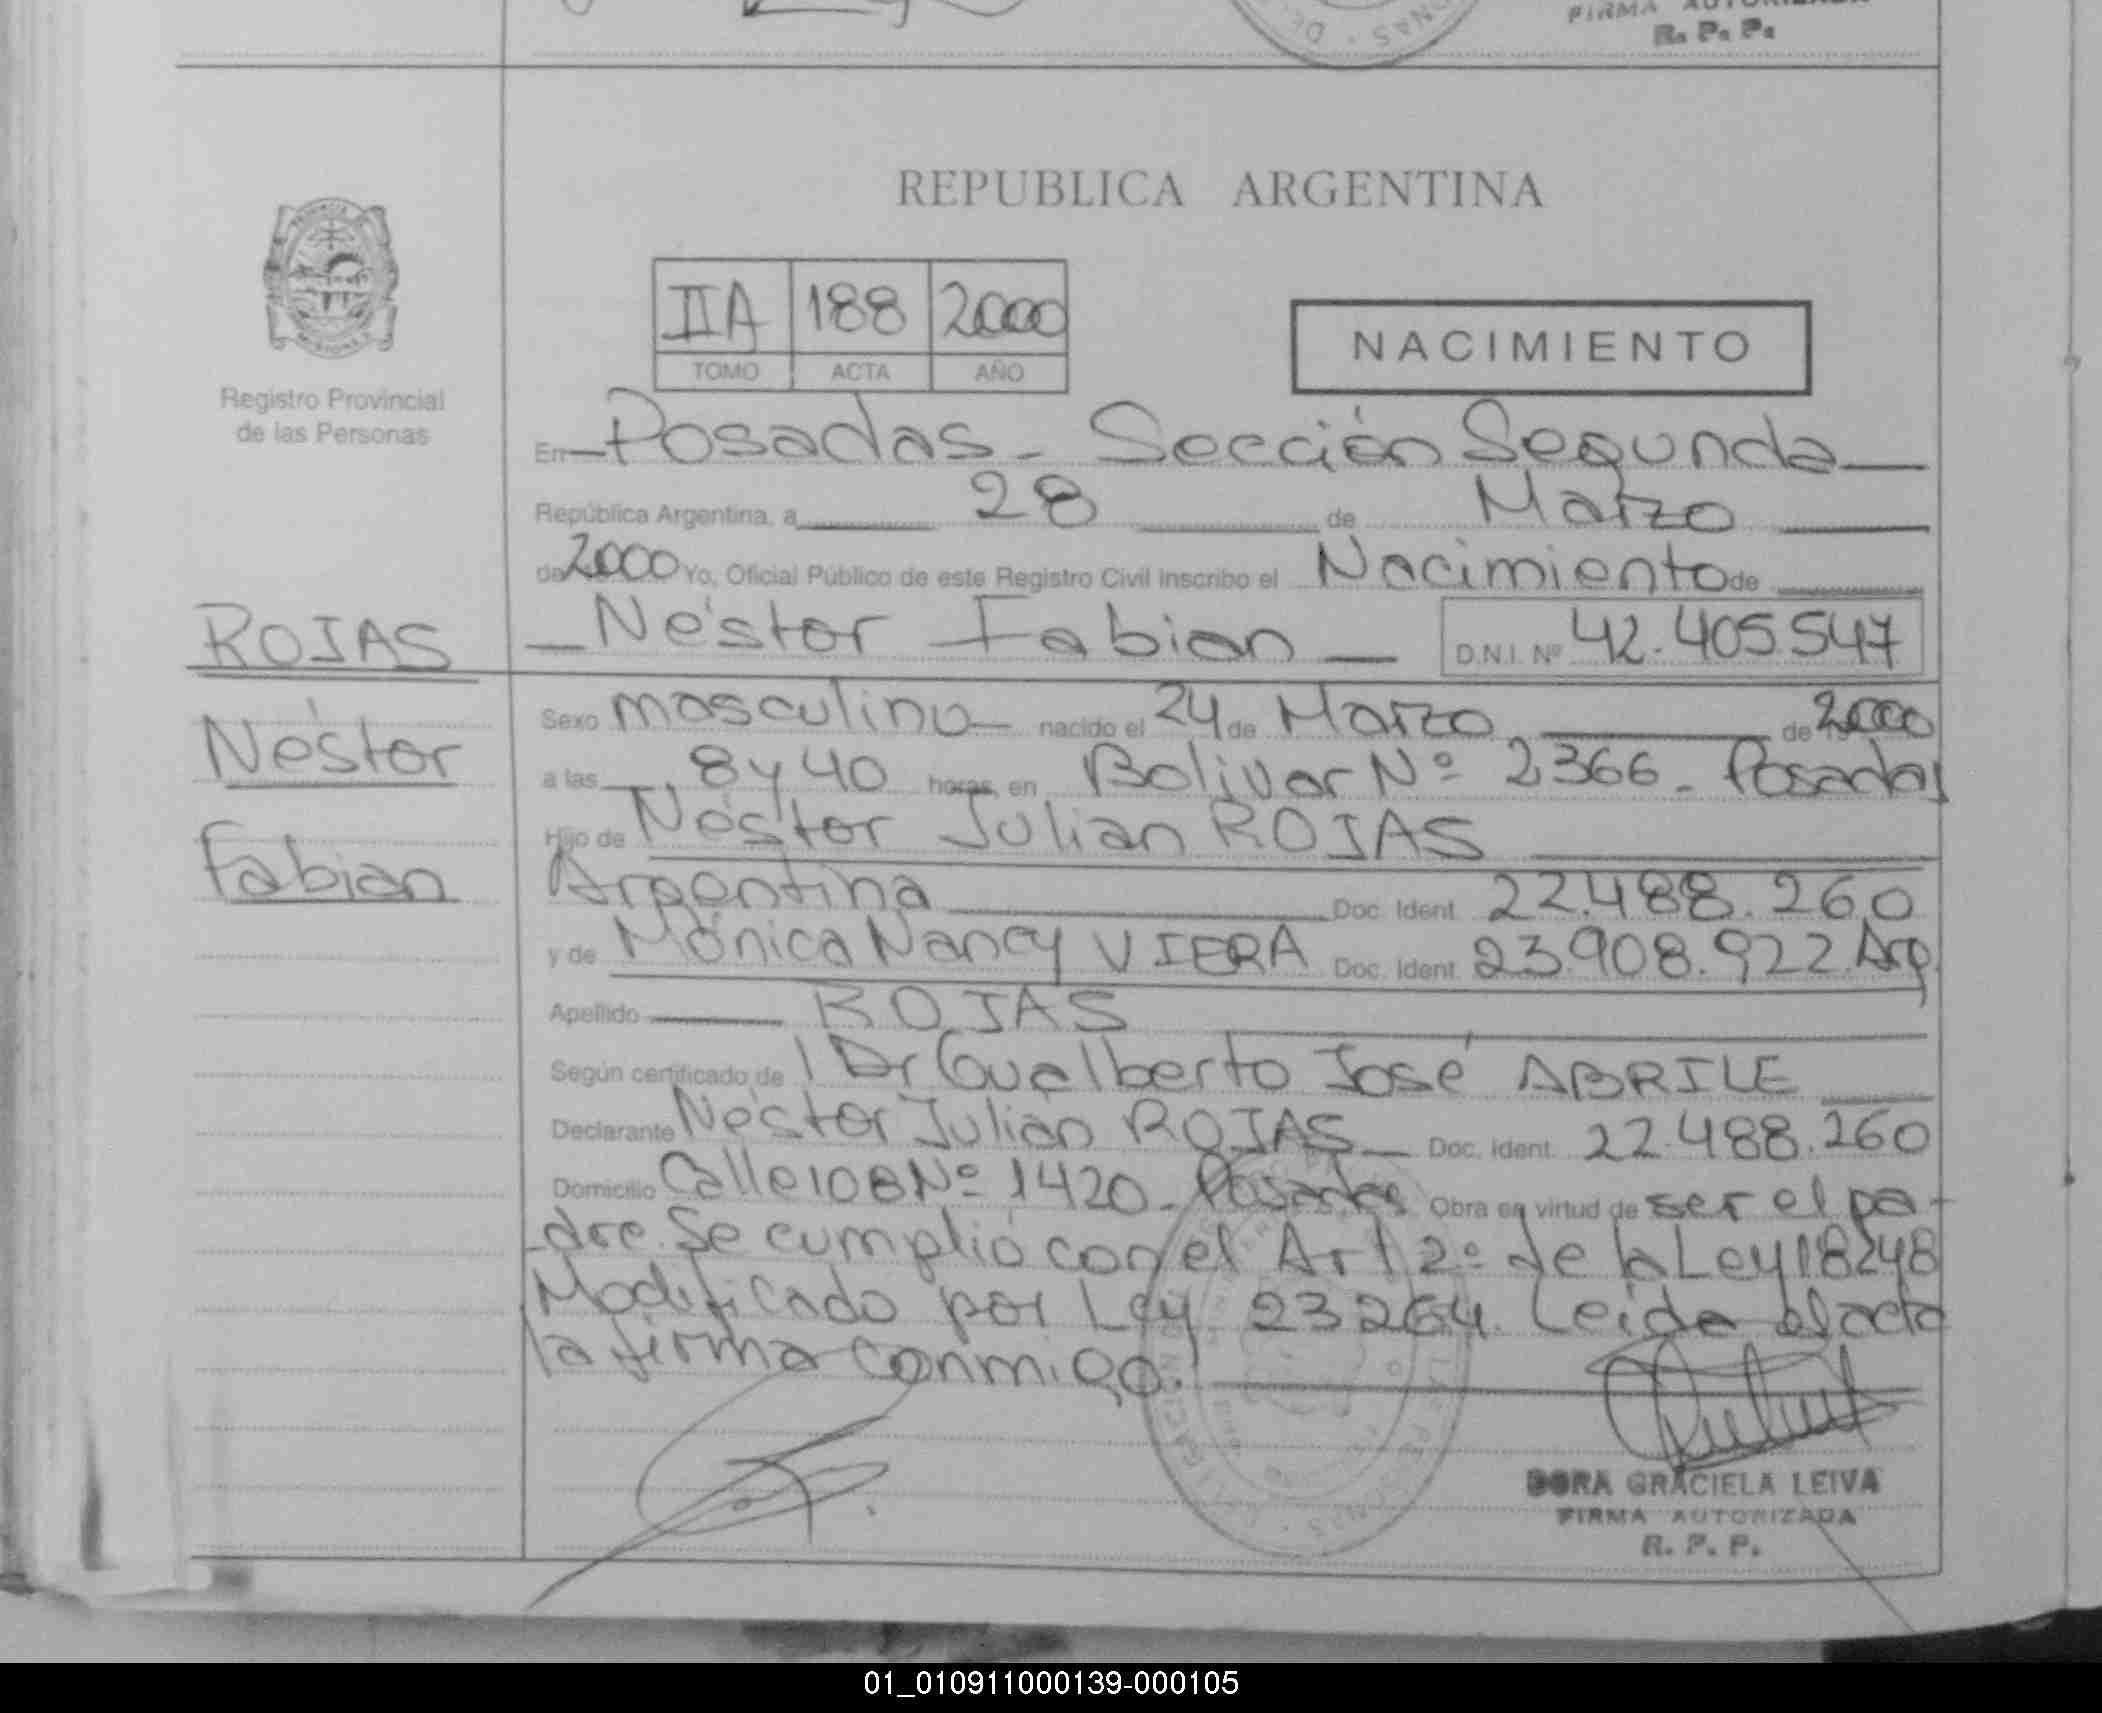 FIRMA AUTORIZADA
R. P. P.
REPUBLICA ARGENTINA
IIA 188 2000
TOMO ACTA AÑO
NACIMIENTO
Registro Provincial
de las Personas
En Posadas - Sección Segunda
República Argentina, a 28 de Marzo
de 2000 Yo, Oficial Público de este Registro Civil inscribo el Nacimiento de
ROJAS
Néstor Fabian D.N.I. Nº 42.405.547
Sexo masculino nacido el 24 de Marzo de 2000
Néstor
a las 8 y 40 horas, en Bolivar Nº 2366 - Posadas
Hijo de Néstor Julian ROJAS
Fabian
Argentina Doc. Ident. 22.488.260
y de Mónica Nancy VIERA Doc. Ident. 23.908.922 Arg.
Apellido ROJAS
Según certificado de l Dr Gualberto José ABRILE
Declarante Néstor Julián ROJAS Doc. Ident. 22.488.260
Domicilio Calle 108 Nº 1420 - Posadas Obra en virtud de ser el pa-
dre. Se cumplió con el Art 2º de la Ley 18248
Modificado por Ley 23264. Leida el acta
la firma conmigo.
DORA GRACIELA LEIVA
FIRMA AUTORIZADA
R. P. P.
01_010911000139-000105